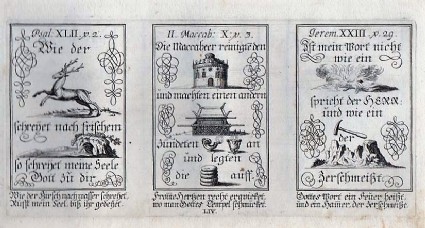 Psal. XLII. v. 2.
Wie der
schreyet nach frischem
so schreyet meine Seele
Gott zu dir
Wie der Hirsch nach wasser schreyet,
Rufft mein Seel, biß ihr gedeyet.
II. Maccab: X. v. 3.
Die Maccabeer reinigten den
und machten einen andern
zündeten an
und legten
die auff.
Fromme Hertzen recht erquicket,
wo man Gottes Tempel schmücket.
LIV.
Jerem. XXIII v. 29.
Ist mein Wort nicht
wie ein
spricht der HERR
und wie ein
der
zerschmeißt.
Gottes Wort ein Feuer heißt,
und ein Hamer, der zerschmeißt.